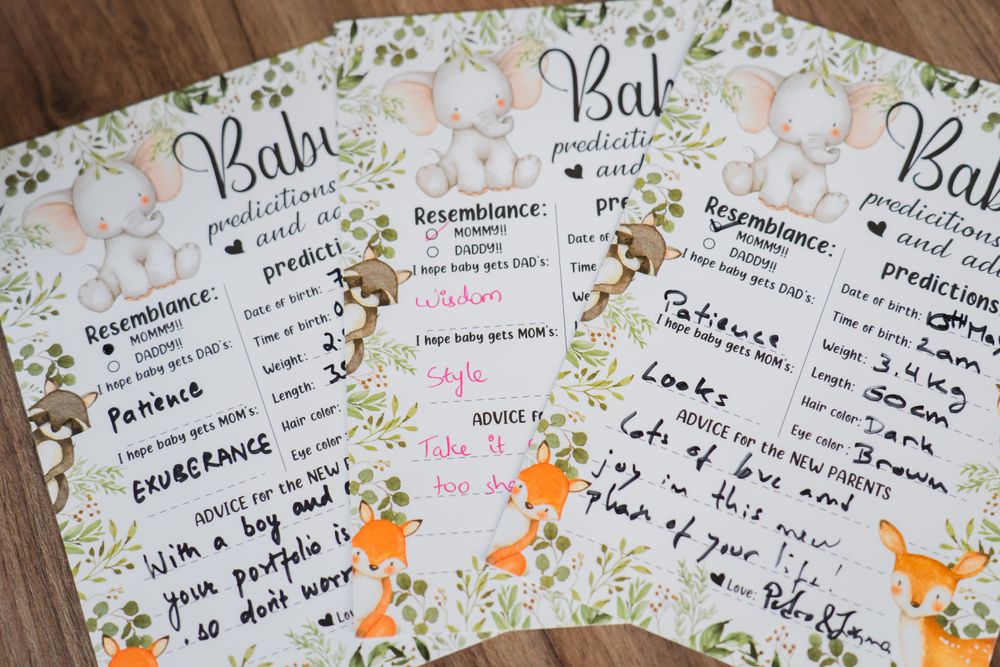 Baby
predicitions
and ad
Resemblance:
MOMMY!!
DADDY!!
I hope baby gets DAD's:
Patience
I hope baby gets MOM's:
EXUBERANCE
predicti
Date of birth:
Time of birth:
Weight: 2.
Length: 3
Hair color:
Eye color:
ADVICE for the NEW P
With a boy and
your portfolio is
so don't worr
Lo
Bab
predicitio
and
Resemblance:
MOMMY!!
DADDY!!
I hope baby gets DAD's:
Wisdom
I hope baby gets MOM's:
Style
pre
Date of
Time
Weig
ADVICE f
Take it
too sh
Bab
predicitions
and ad
Resemblance:
MOMMY!!
DADDY!!
I hope baby gets DAD's:
Patience
I hope baby gets MOM's:
Looks
predictions
Date of birth: May
Time of birth: 2am
Weight: 3.4kg
Length: 60cm
Hair color: Dark
Eye color: Brown
ADVICE for the NEW PARENTS
Lots of love and
joy in this new
phase of your life!
Love: